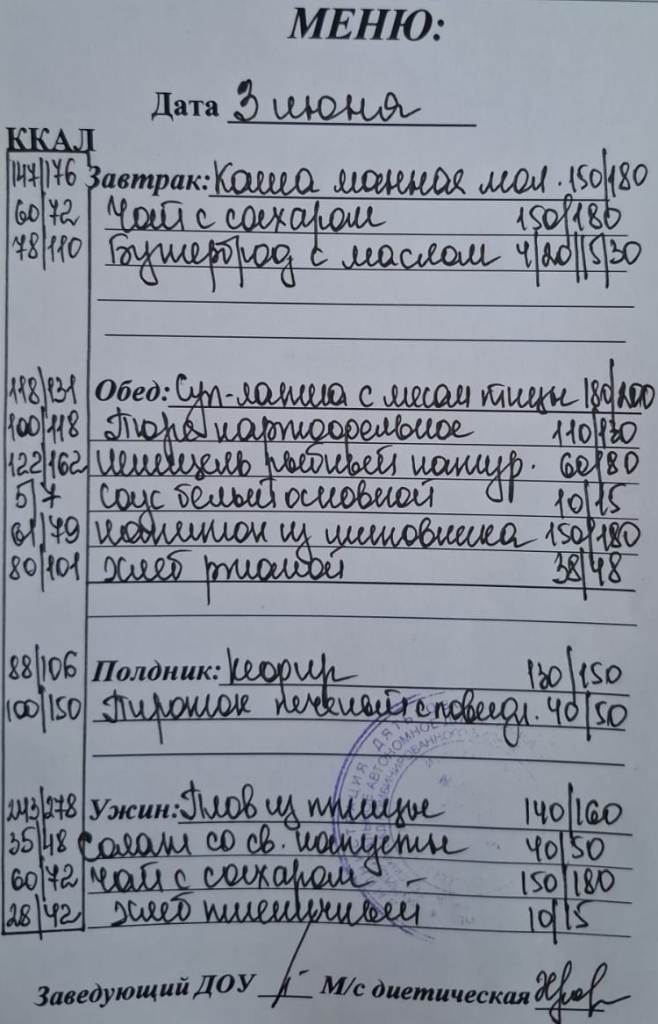 МЕНЮ:
Дата 3 июня
ККАЛ
147/176 Завтрак: Каша манная мол. 150/180
60/72 Чай с сахаром 150/180
78/110 Бутерброд с маслом 4/20//5/30
118/131 Обед: Суп-лапша с мясом птицы 180/200
100/118 Пюре картофельное 110/130
122/162 Шницель рыбный натур. 60/80
5/7 Соус белый основной 10/15
61/79 напиток из шиповника 150/180
80/101 хлеб ржаной 38/48
88/106 Полдник: кефир 130/150
100/150 Пирожок печеный с повидл. 40/50
АВТОНОМНОЕ
243/278 Ужин: Плов из птицы 140/160
35/48 салат со св. капусты 40/50
60/72 Чай с сахаром - 150/180
28/42 хлеб пшеничный 10/15
Заведующий ДОУ М/с диетическая